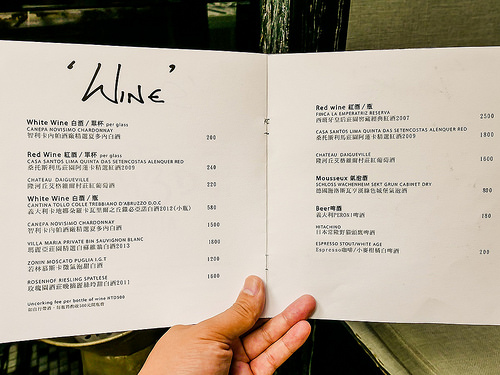 'WINE'
White Wine 白酒 / 單杯 per glass
CANEPA NOVISIMO CHARDONNAY
智利卡內帕酒廠精選夏多內白酒 200
Red Wine 紅酒 / 單杯 per glass
CASA SANTOS LIMA QUINTA DAS SETENCOSTAS ALENQUER RED
桑托斯利馬莊園阿蓮卡精選紅酒2009 240
CHATEAU DAIGUEVILLE
隆河丘艾格維爾村莊紅葡萄酒 220
White Wine 白酒 / 瓶
CANTINA TOLLO COLLE TREBBIANO D'ABRUZZO D.O.C
義大利卡地耶朵羅卡瓦里爾之丘 白酒2012(小瓶) 580
CANEPA NOVISIMO CHARDONNAY
智利卡內帕酒廠精選夏多內白酒 1500
VILLA MARIA PRIVATE BIN SAUVIGNON BLANC
瑪麗亞莊園精選白蘇維翁白酒2013 1800
ZONIN MOSCATO PUGLIA I.G.T
若林慕斯卡微氣泡甜白酒 1200
ROSENHOF RIESLING SPATLESE
玫瑰園酒莊晚摘麗絲玲甜白酒2011 1600
Uncorking fee per bottle of wine NTD500
Red wine 紅酒 / 瓶
FINCA LA EMPERATRIZ RESERVA
西班牙皇后莊園窖藏經典紅酒2007 2500
CASA SANTOS LIMA QUINTA DAS SETENCOSTAS ALENQUER RED
桑托斯利馬莊園阿蓮卡精選紅酒2009 1800
CHATEAU DAIGUEVILLE
隆河丘艾格維爾村莊紅葡萄酒 1600
Mousseux 氣泡酒
SCHLOSS WACHENHEIM SEKT GRUN CABINET DRY
德國施洛斯瓦亨漢綠色城堡氣泡酒 900
Beer啤酒
義大利PERONI啤酒 180
HITACHINO
日本常陸野貓頭鷹啤酒
ESPRESSO STOUT/WHITE AGE
Espresso咖啡/小麥柑橘白啤酒 240